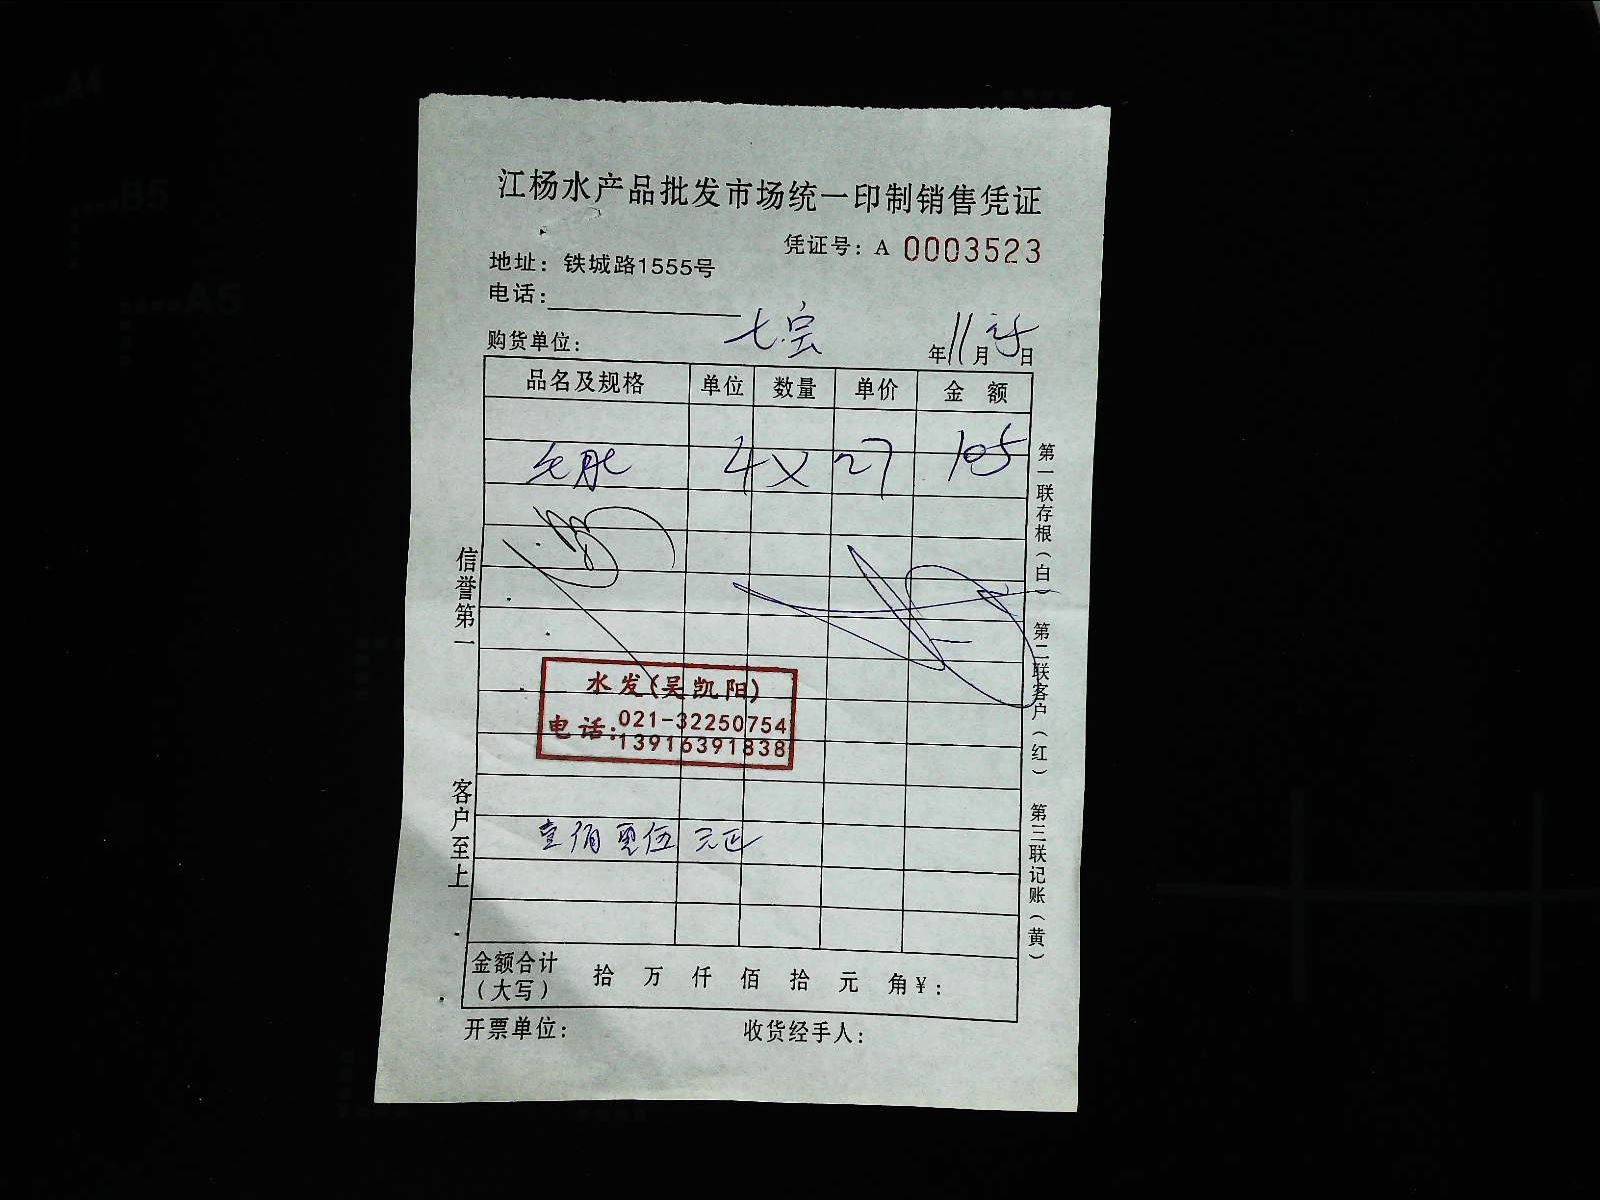 江杨水产品批发市场统一印制销售凭证
凭证号：A 0003523
地址：铁城路1555号
电话：
购货单位： 七宝 年 11 月 25 日
品名及规格 单位 数量 单价 金 额
4 X 27 105
水发(吴凯阳)
电话：021-32250754
13916391838
壹佰零伍元正
金额合计（大写） 拾 万 仟 佰 拾 元 角 ¥：
开票单位： 收货经手人：
信誉第一
客户至上
第一联存根（白） 第二联客户（红） 第三联记账（黄）
A4
B5
A5